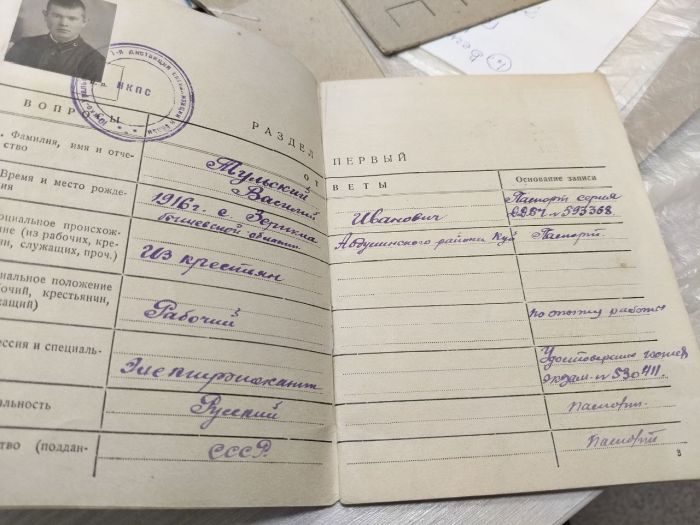 НКПС
ВОПРОСЫ
РАЗДЕЛ ПЕРВЫЙ
ОТВЕТЫ
Основание записи
Фамилия, имя и отче-
ство
Тульский
Василий
Иванович
Паспорт серия
№ 593368
Время и место рожде-
ния
1916 г. с.
Абдулинского района Куй
бышевской области
Паспорт.
социальное происхож-
ние (из рабочих, кре-
н, служащих, проч.)
Из крестьян
иальное положение
бочий, крестьянин,
жащий)
Рабочий
по опыту работы
ессия и специаль-
Удостоверение
№ 530411.
альность
Русский
паспорт.
ство (поддан-
СССР.
паспорт
3